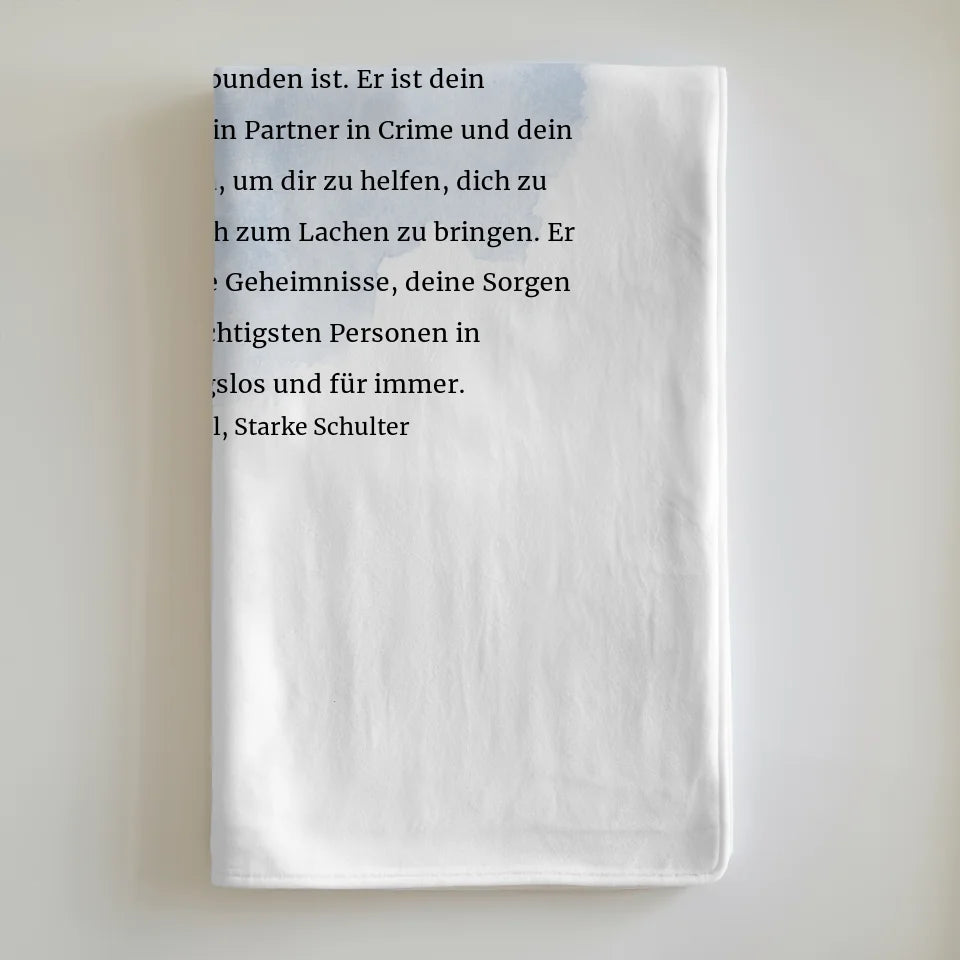 bunden ist. Er ist dein
in Partner in Crime und dein
, um dir zu helfen, dich zu
h zum Lachen zu bringen. Er
e Geheimnisse, deine Sorgen
chtigsten Personen in
gslos und für immer.
l, Starke Schulter